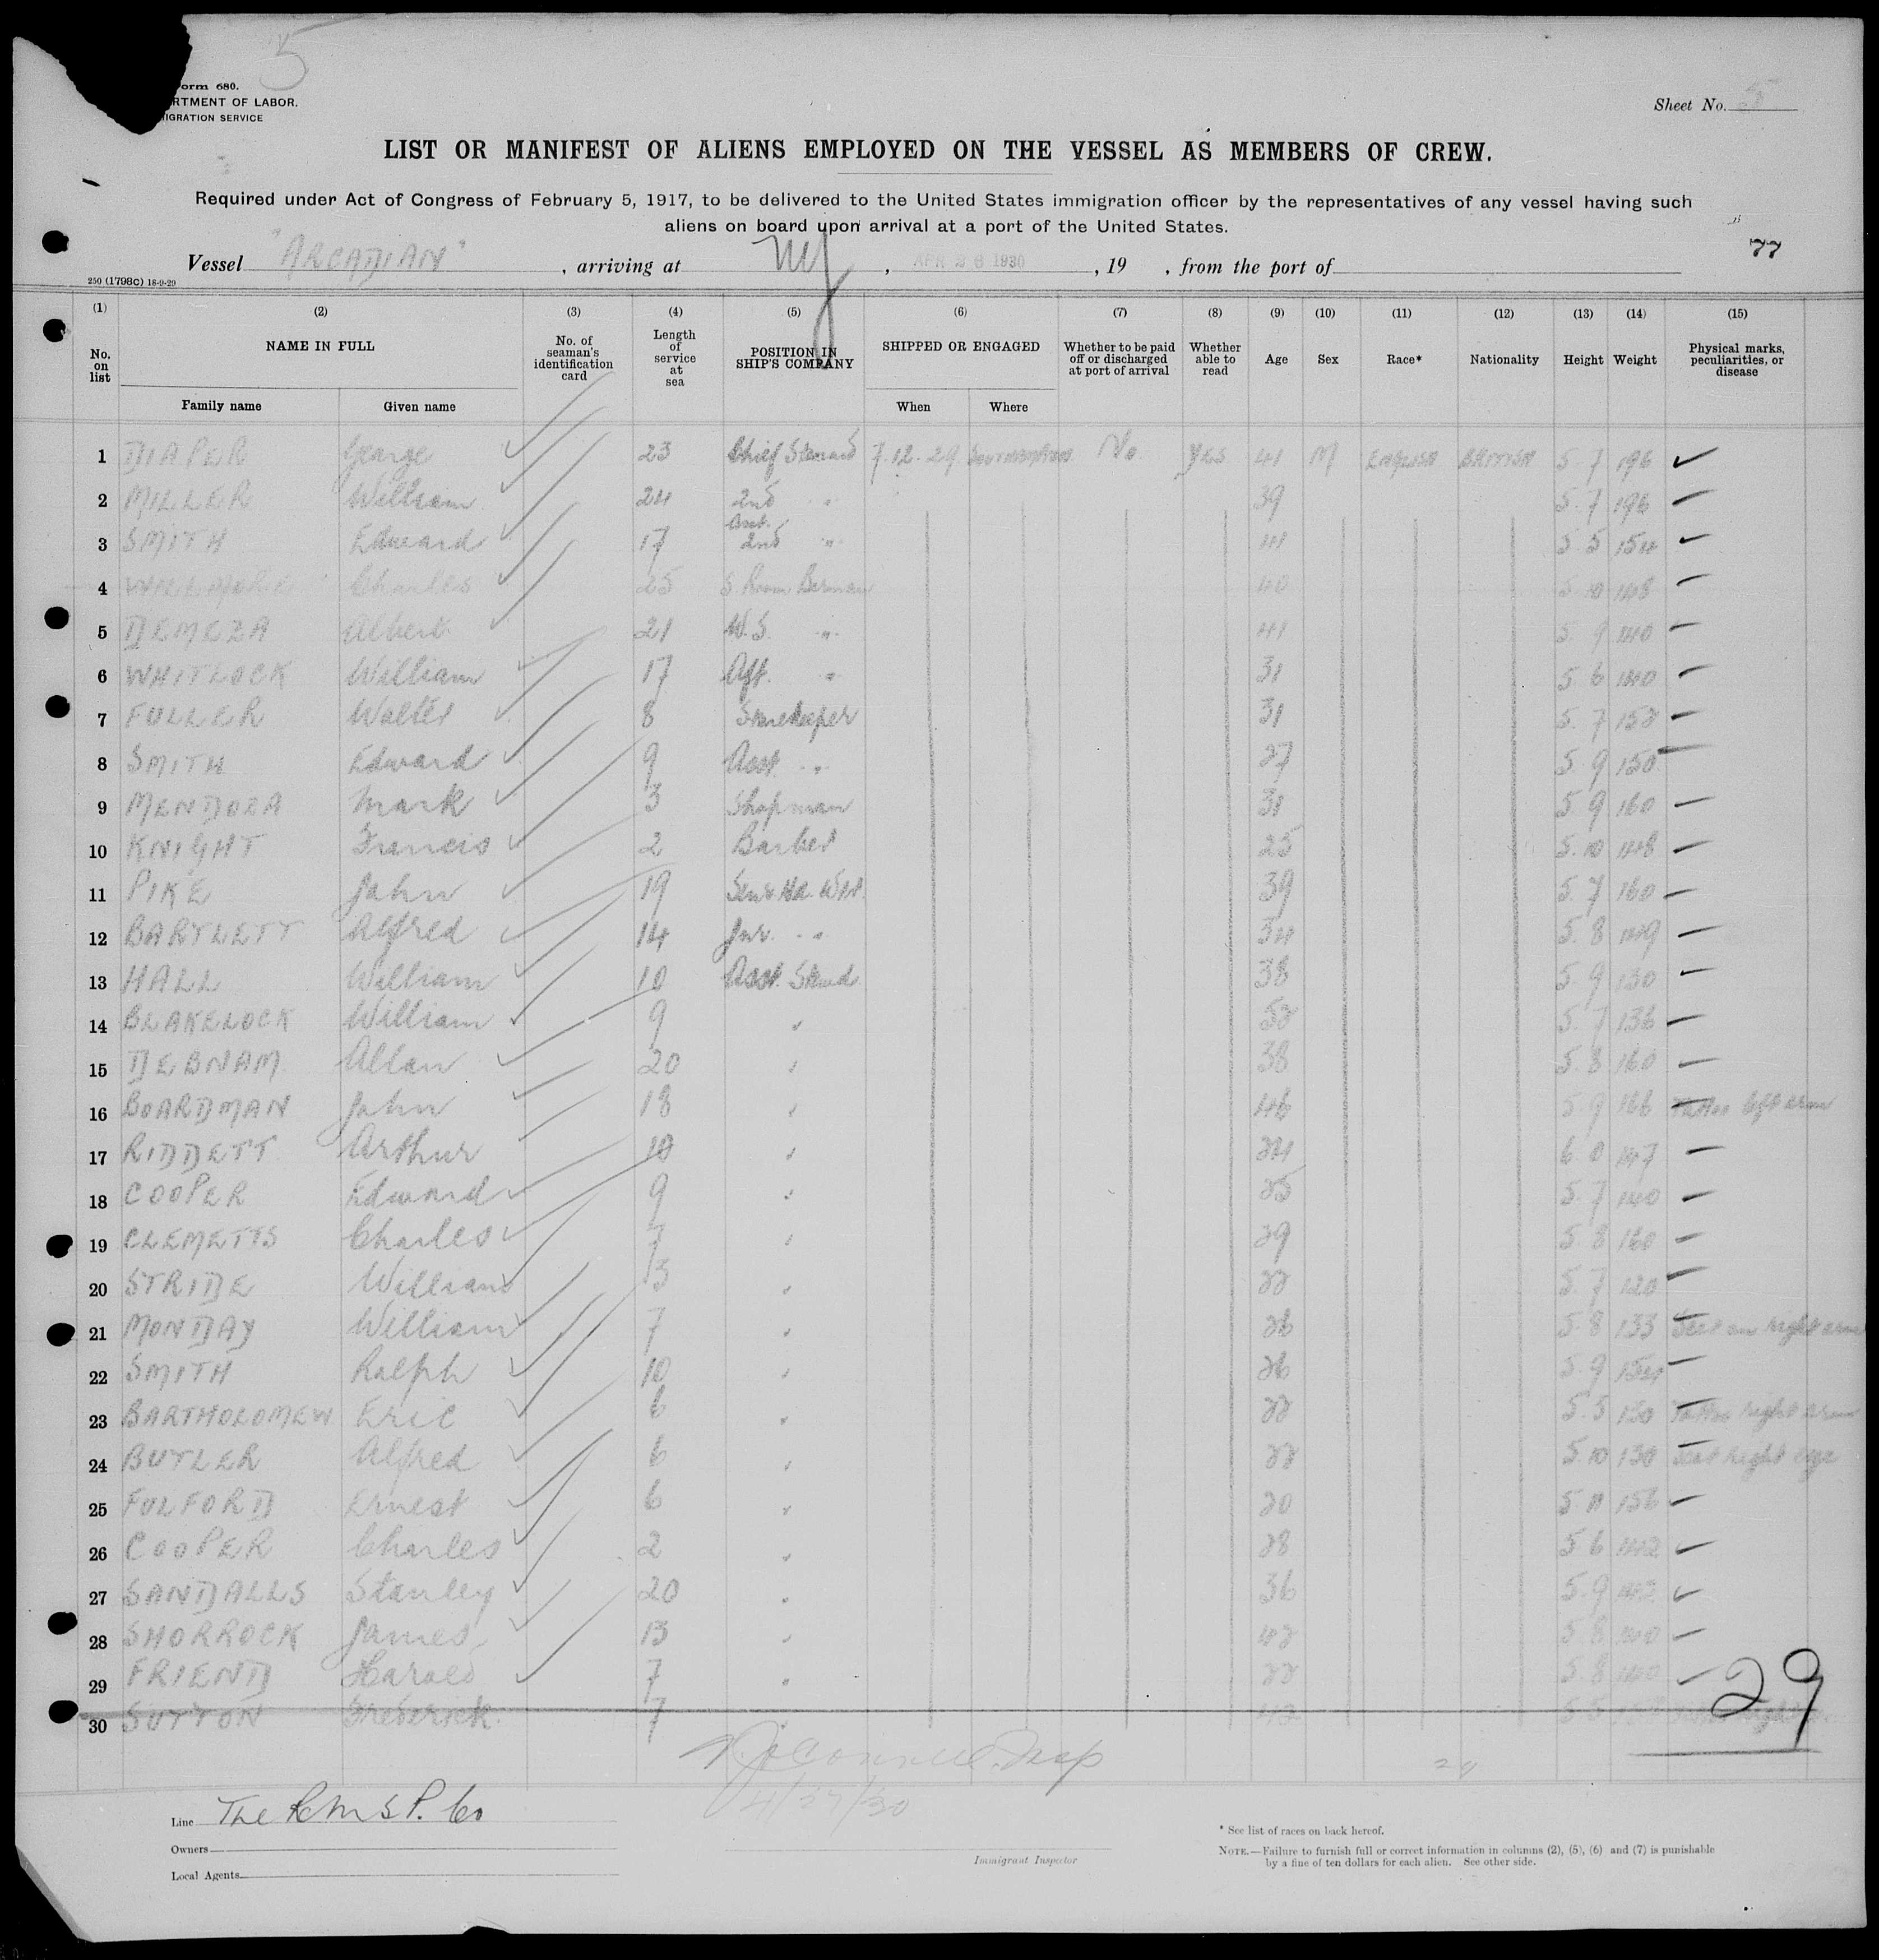 5
orm 680.
RTMENT OF LABOR.
IGRATION SERVICE
Sheet No. 5
LIST OR MANIFEST OF ALIENS EMPLOYED ON THE VESSEL AS MEMBERS OF CREW.
Required under Act of Congress of February 5, 1917, to be delivered to the United States immigration officer by the representatives of any vessel having such
aliens on board upon arrival at a port of the United States.
77
Vessel "ARCADIAN", arriving at NY, APR 26 1930, 19 , from the port of
250 (1798C) 18-9-29
(1) (2) (3) (4) (5) (6) (7) (8) (9) (10) (11) (12) (13) (14) (15)
No. on list NAME IN FULL No. of seaman's identification card Length of service at sea POSITION IN SHIP'S COMPANY SHIPPED OR ENGAGED Whether to be paid off or discharged at port of arrival Whether able to read Age Sex Race* Nationality Height Weight Physical marks, peculiarities, or disease
Family name Given name When Where
1 DIAPER George 23 Chief Steward 7.12.29 Southampton No Yes 41 M ENGLISH BRITISH 5 7 196
2 MILLER William 24 2nd " 39 5 7 196
3 SMITH Edward 17 Asst. 2nd " 41 5 5 154
4 Charles 25 S. Room Barman 40 5 10 148
5 DEMEZA Albert 21 W.S. " 41 5 9 140
6 WHITLOCK William 17 Aft. " 31 5 6 140
7 FULLER Walter 8 Storekeeper 31 5 7 152
8 SMITH Edward 9 Asst. " 27 5 9 150
9 MENDOZA Mark 3 Shopman 31 5 9 160
10 KNIGHT Francis 2 Barber 25 5 10 148
11 PIKE John 19 39 5 7 160
12 BARTLETT Alfred 14 Jnr. " 34 5 8 149
13 HALL William 10 Asst. Stwd. 38 5 9 130
14 BLAKELOCK William 9 " 52 5 7 136
15 DEBNAM Allan 20 " 38 5 8 160
16 BOARDMAN John 18 " 46 5 9 166 Tattoo left arm
17 RIDDETT Arthur 10 " 24 6 0 147
18 COOPER Edward 9 " 25 5 7 140
19 CLEMETTS Charles 7 " 29 5 8 160
20 STRIDE William 3 " 22 5 7 120
21 MONDAY William 7 " 26 5 8 133 Scar on right arm
22 SMITH Ralph 10 " 26 5 9 154
23 BARTHOLOMEW Eric 6 " 22 5 5 130 Tattoo right arm
24 BUTLER Alfred 6 " 22 5 10 130 Scar right eye
25 FULFORD Ernest 6 " 20 5 11 156
26 COOPER Charles 2 " 28 5 6 142
27 SANDALLS Stanley 20 " 36 5 9 142
28 SHORROCK James 13 " 42 5 8 140
29 FRIEND Harold 7 " 22 5 8 140
30 SUTTON Frederick 7 " 42 5 5
29
29
4/27/30
Line The R.M.S.P. Co
Owners
Local Agents
Immigrant Inspector
* See list of races on back hereof.
NOTE.—Failure to furnish full or correct information in columns (2), (5), (6) and (7) is punishable
by a fine of ten dollars for each alien. See other side.